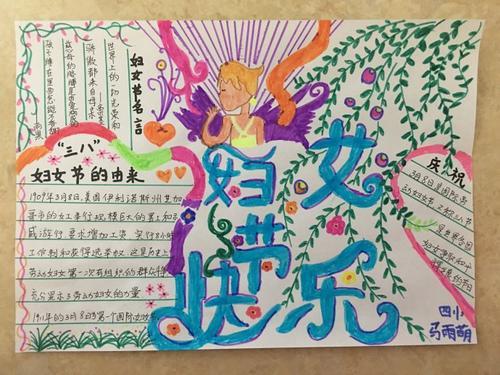 妇女节名言
世界上的一切光荣和
骄傲都来自母亲
“三八”
妇女节的由来
1909年3月8日,美国伊利诺斯州芝加
哥市的女工举行规模巨大的罢工和示
威游行,要求增加工资,实行8小时
工作制和获得选举权,这是历史上
劳动妇女第一次有组织的群众
充分显示了劳动妇女的力量
1911年的3月8日为第一个国际妇女
妇女节快乐
庆祝
3月8日是国际劳
动妇女节
四小
马雨萌